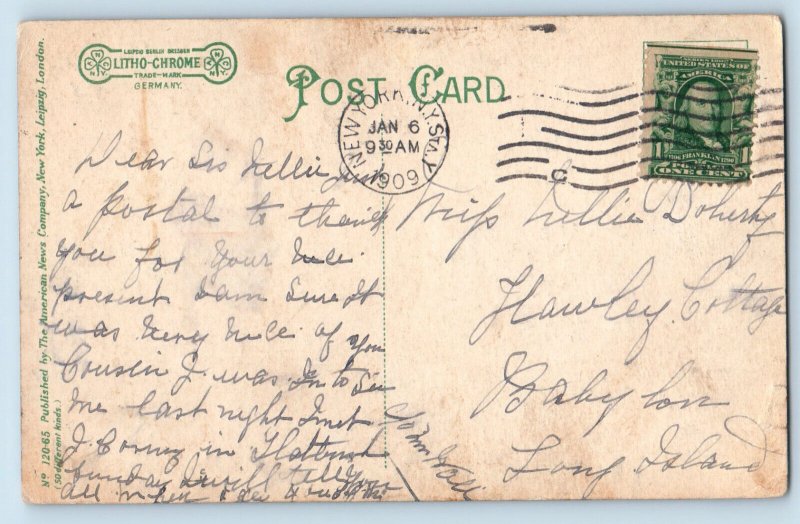 LEIPZIG BERLIN DRESDEN
LITHO-CHROME
TRADE-MARK
GERMANY.
POST CARD
NEW YORK, N.Y. STA.
JAN 6
9 30 AM
1909
C
SERIES 1902
UNITED STATES OF
AMERICA
1706 FRANKLIN 1790
POSTAGE
1 ONE CENT 1
Nº 120-65 Published by The American News Company, New York, Leipzig, London.
(50 different kinds.)
Dear Sis Nellie just
a postal to thank
you for your nice
present I am sure it
was very nice of you
Cousin J. was in to see
me last night I met
J. Corny in Flatbush
Sunday I will tell you
all when I see you
John Will
Miss Nellie Doherty
Hawley Cottage
Babylon
Long Island